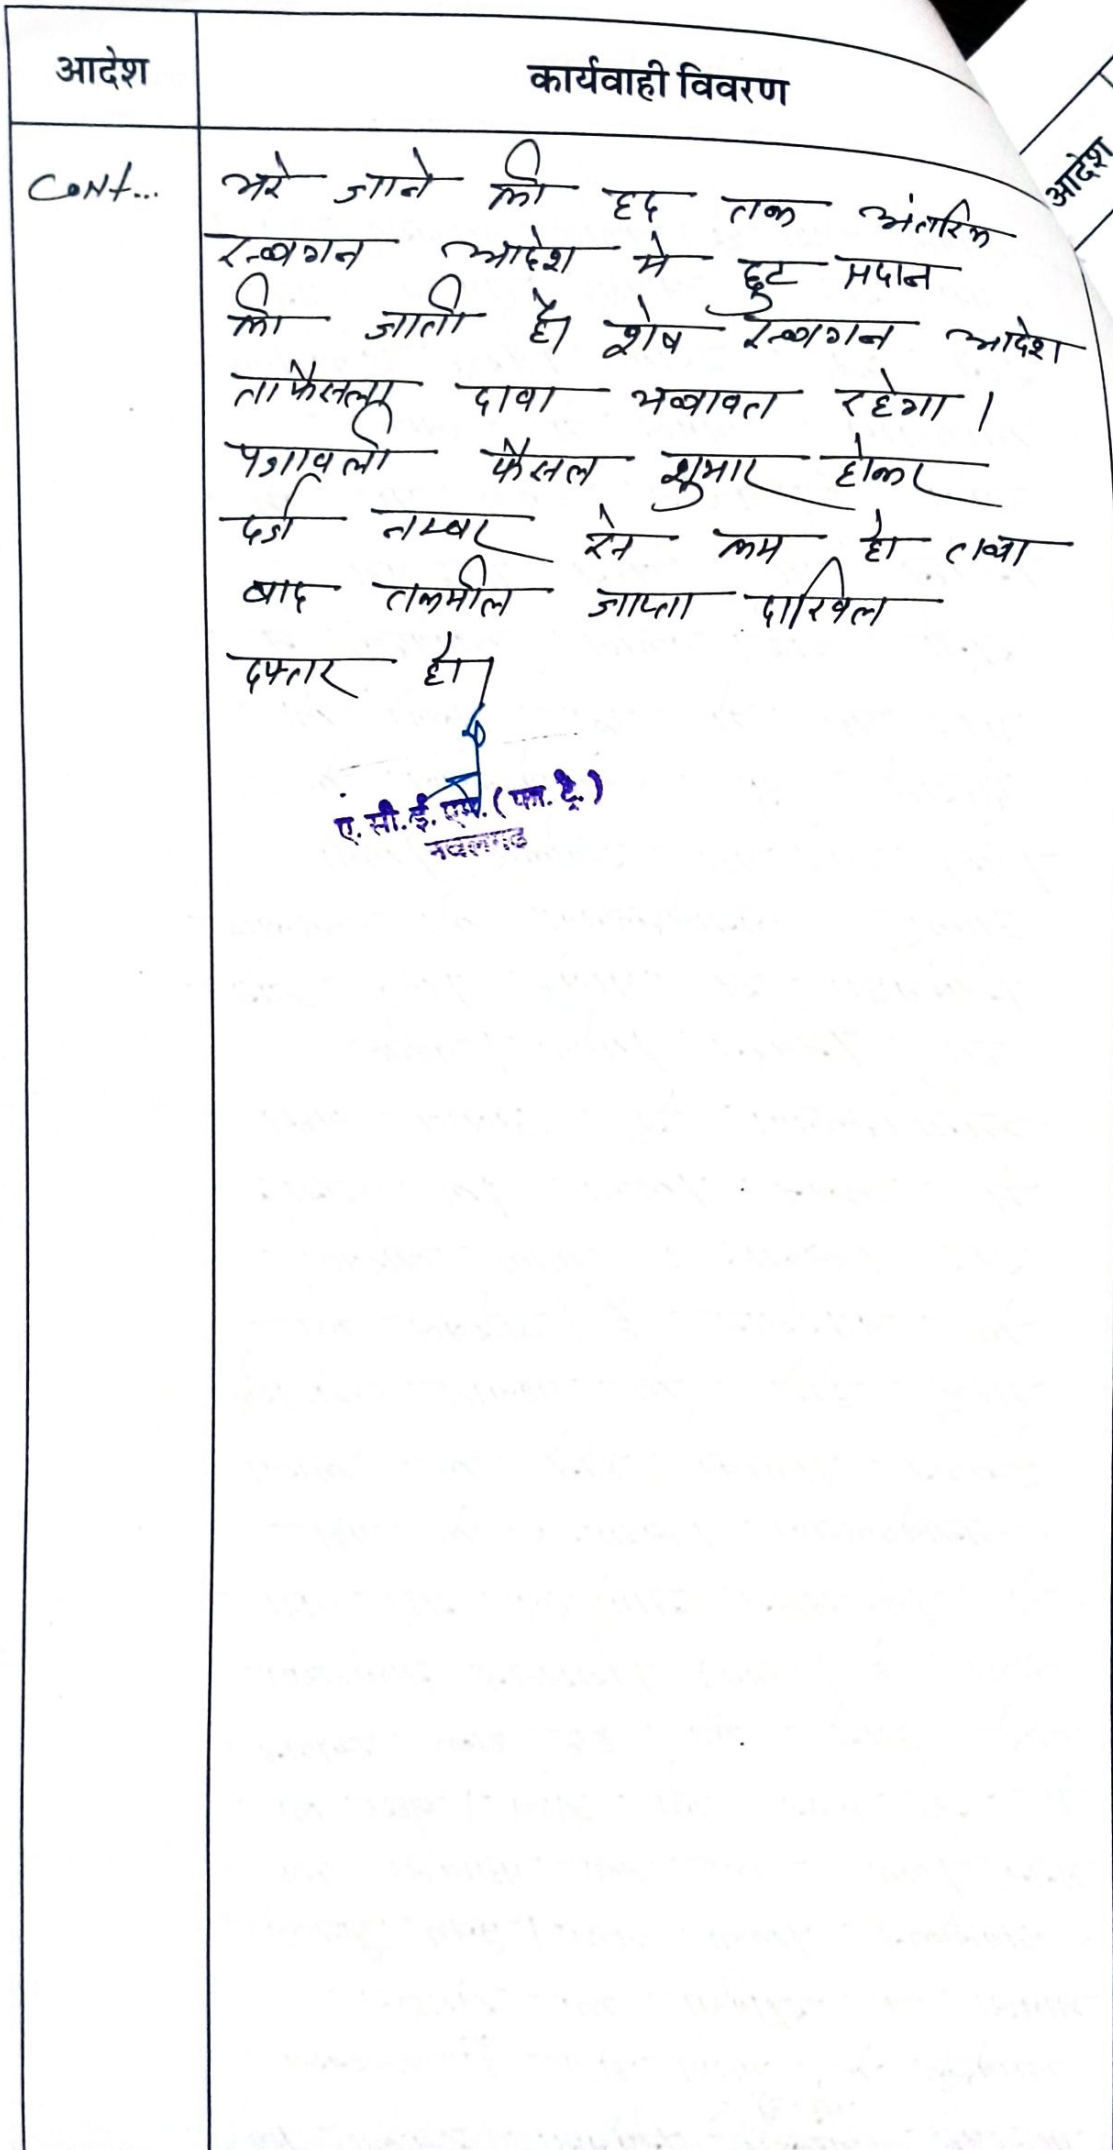 आदेश
कार्यवाही विवरण
आदेश
CONt...
भरे जाने की हद तक अंतरिम
स्थगन आदेश मे छुट प्रदान
की जाती है। शेष स्थगन आदेश
ताफैसला दावा यथावत रहेगा।
पत्रावली फैसल शुमार होकर
दर्ज नम्बर से कम हो तथा
बाद तकमील जाप्ता दाखिल
दफ्तर हो।
ए. सी. ई. एम. (फा. ट्रे.)
नवलगढ